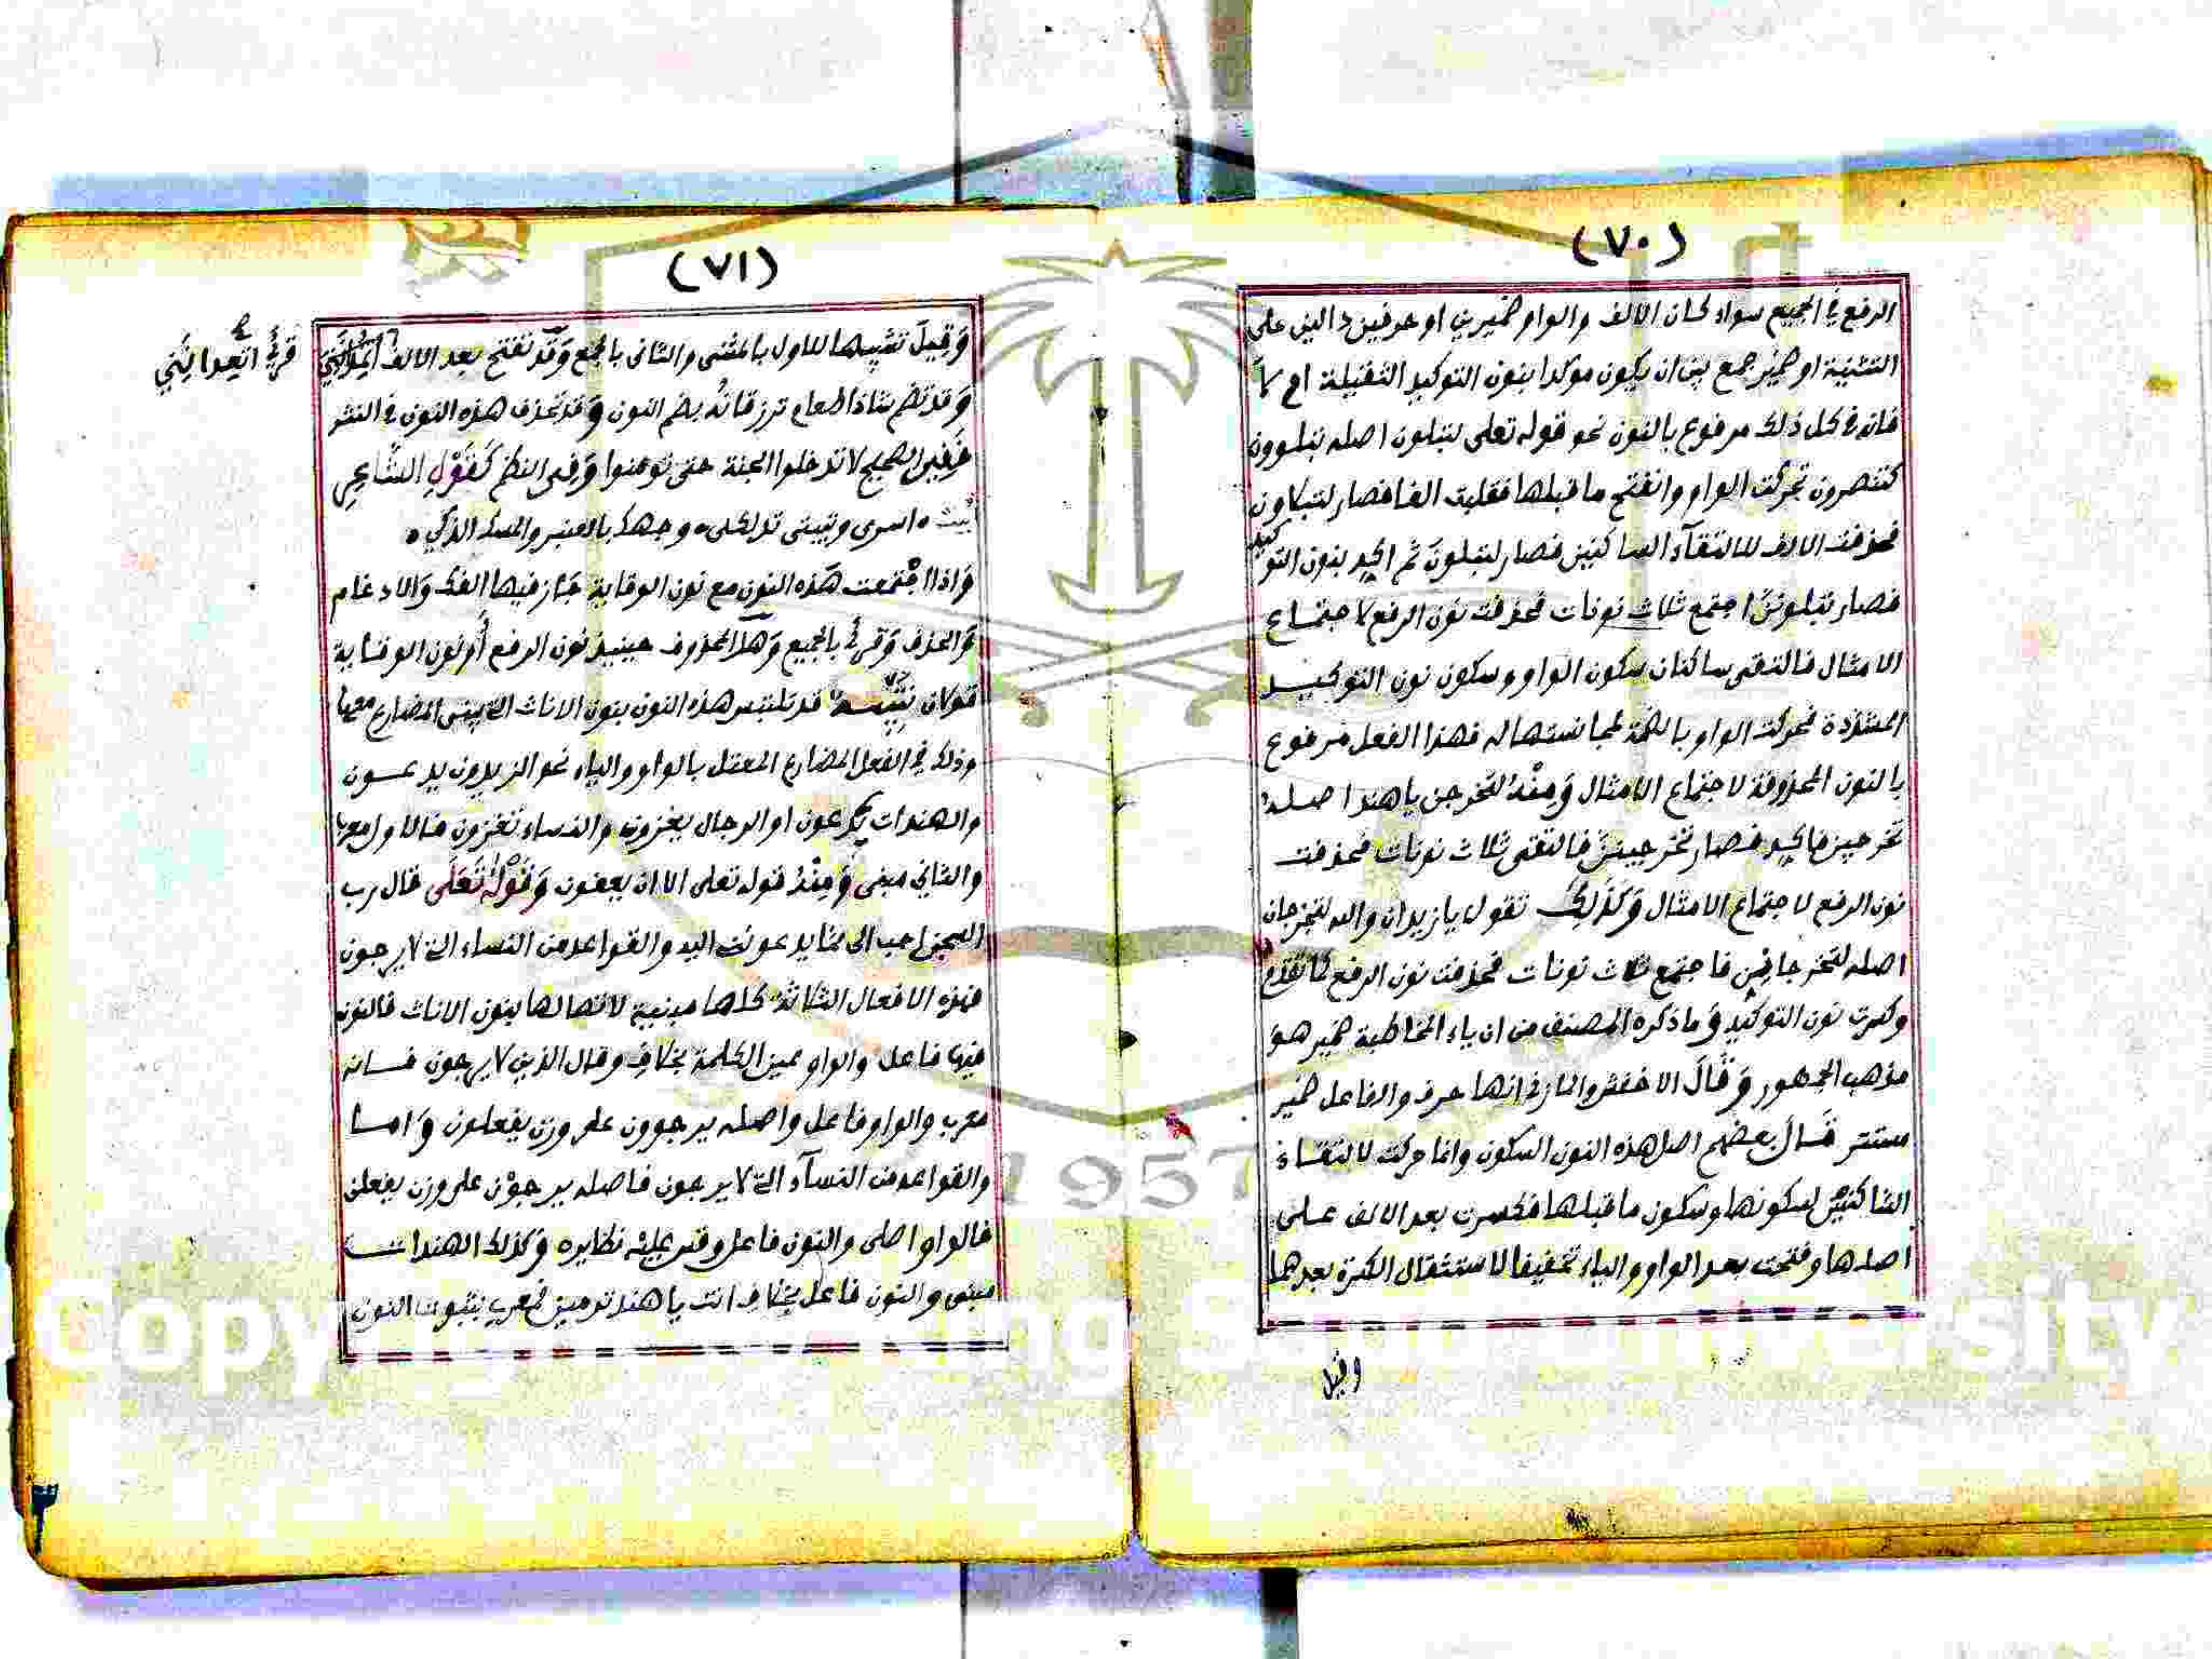 (٧٠)
الرفع في الجميع سواء كان الالف والواو ضميرين او حرفين دالين على
التثنية او ضمير جمع بين ان يكون موكدا بنون التوكيد الثقيلة ام لا
فانه في كل ذلك مرفوع بالنون نحو قوله تعلى لتبلون اصله تبلوون
كتنصرون تحركت الواو وانفتح ما قبلها فقلبت الفا فصار لتبلاون
فحذفت الالف لالتقآء الساكنين فصار لتبلون ثم اكد بنون التوكيد
فصار تبلوننّ اجتمع ثلاث نونات فحذفت نون الرفع لاجتماع
الامثال فالتقى ساكنان سكون الواو وسكون نون التوكيد
المشددة فحركت الواو بالضمة لمجانستها له فهذا الفعل مرفوع
بالنون المحذوفة لاجتماع الامثال وَمِنْهُ لتخرجن يا هند اصله
تخرجين فاكد فصار تخرجيننّ فالتقى ثلاث نونات فحذفت
نون الرفع لاجتماع الامثال وَكَذَلِكَ تقول يا زيدان والله لتخرجان
اصله لتخرجانن فاجتمع ثلاث نونات فحذفت نون الرفع كما تقدم
وكسرت نون التوكيد وما ذكره المصنف من ان ياء المخاطبة ضمير هو
مذهب الجمهور وَقَالَ الاخفش والمازني انها حرف والفاعل ضمير
مستتر قَالَ بعضهم اصل هذه النون السكون وانما حركت لالتقاء
الساكنين لسكونها وسكون ما قبلها فكسرت بعد الالف على
اصلها وفتحت بعد الواو والياء تخفيفا لاستثقال الكسرة بعدهما
وقيل
(٧١)
وَقِيلَ تشبيها للاول بالمثنى والثانى بالجمع وَقَد تفتح بعد الالف
قرئ اتعدانني
وَقد تضم شاذا طعام ترزقانُه بضم النون وَقد تحذف هذه النون في النثر
فَفِي الصحيح لا تدخلوا الجنة حتى تومنوا وَفِى النظم كَقَوْلِ الشَّاعِرِ
بيت ٥ اسرى وتبيتى تدلكى ٥ وجهك بالعنبر والمسك الذكي ٥
وَاذا اجْتمعت هَذه النون مع نون الوقاية جَاز فيها الفك وَالادغام
وَالحذف وَقرئ بالجميع وَهل المحذوف حينيذ نون الرفع أو نون الوقاية
قولان تَنْبِيه قد تلتبس هذه النون بنون الاناث التي يبنى المضارع معها
وذلك في الفعل المضارع المعتل بالواو والياء نحو الزيدون يدعون
والهندات يدعون او الرجال يغزون والنساء تغزون فالاول معرب
والثاني مبنى وَمِنْهُ قوله تعلى الا ان يعفون وَقَوْلُهُ تَعَلَى قال رب
السجن احب الى مما يدعوننى اليه والقواعد من النساء التي لا يرجون
فهذه الافعال الثلاثة كلها مبنية لاتصالها بنون الاناث فالنون
فيها فاعل والواو عين الكلمة بخلاف وقال الذين لا يرجون فانه
معرب والواو فاعل واصله يرجوون على وزن يفعلون وَاما
والقواعد من النسآء التي لا يرجون فاصله يرجوْن على وزن يفعلن
فالواو اصلى والنون فاعل وقس عليه نظايره وَكذلك الهندات
مبنى والنون فاعل بخلاف انت يا هند ترمين فمعرب بثبوت النون